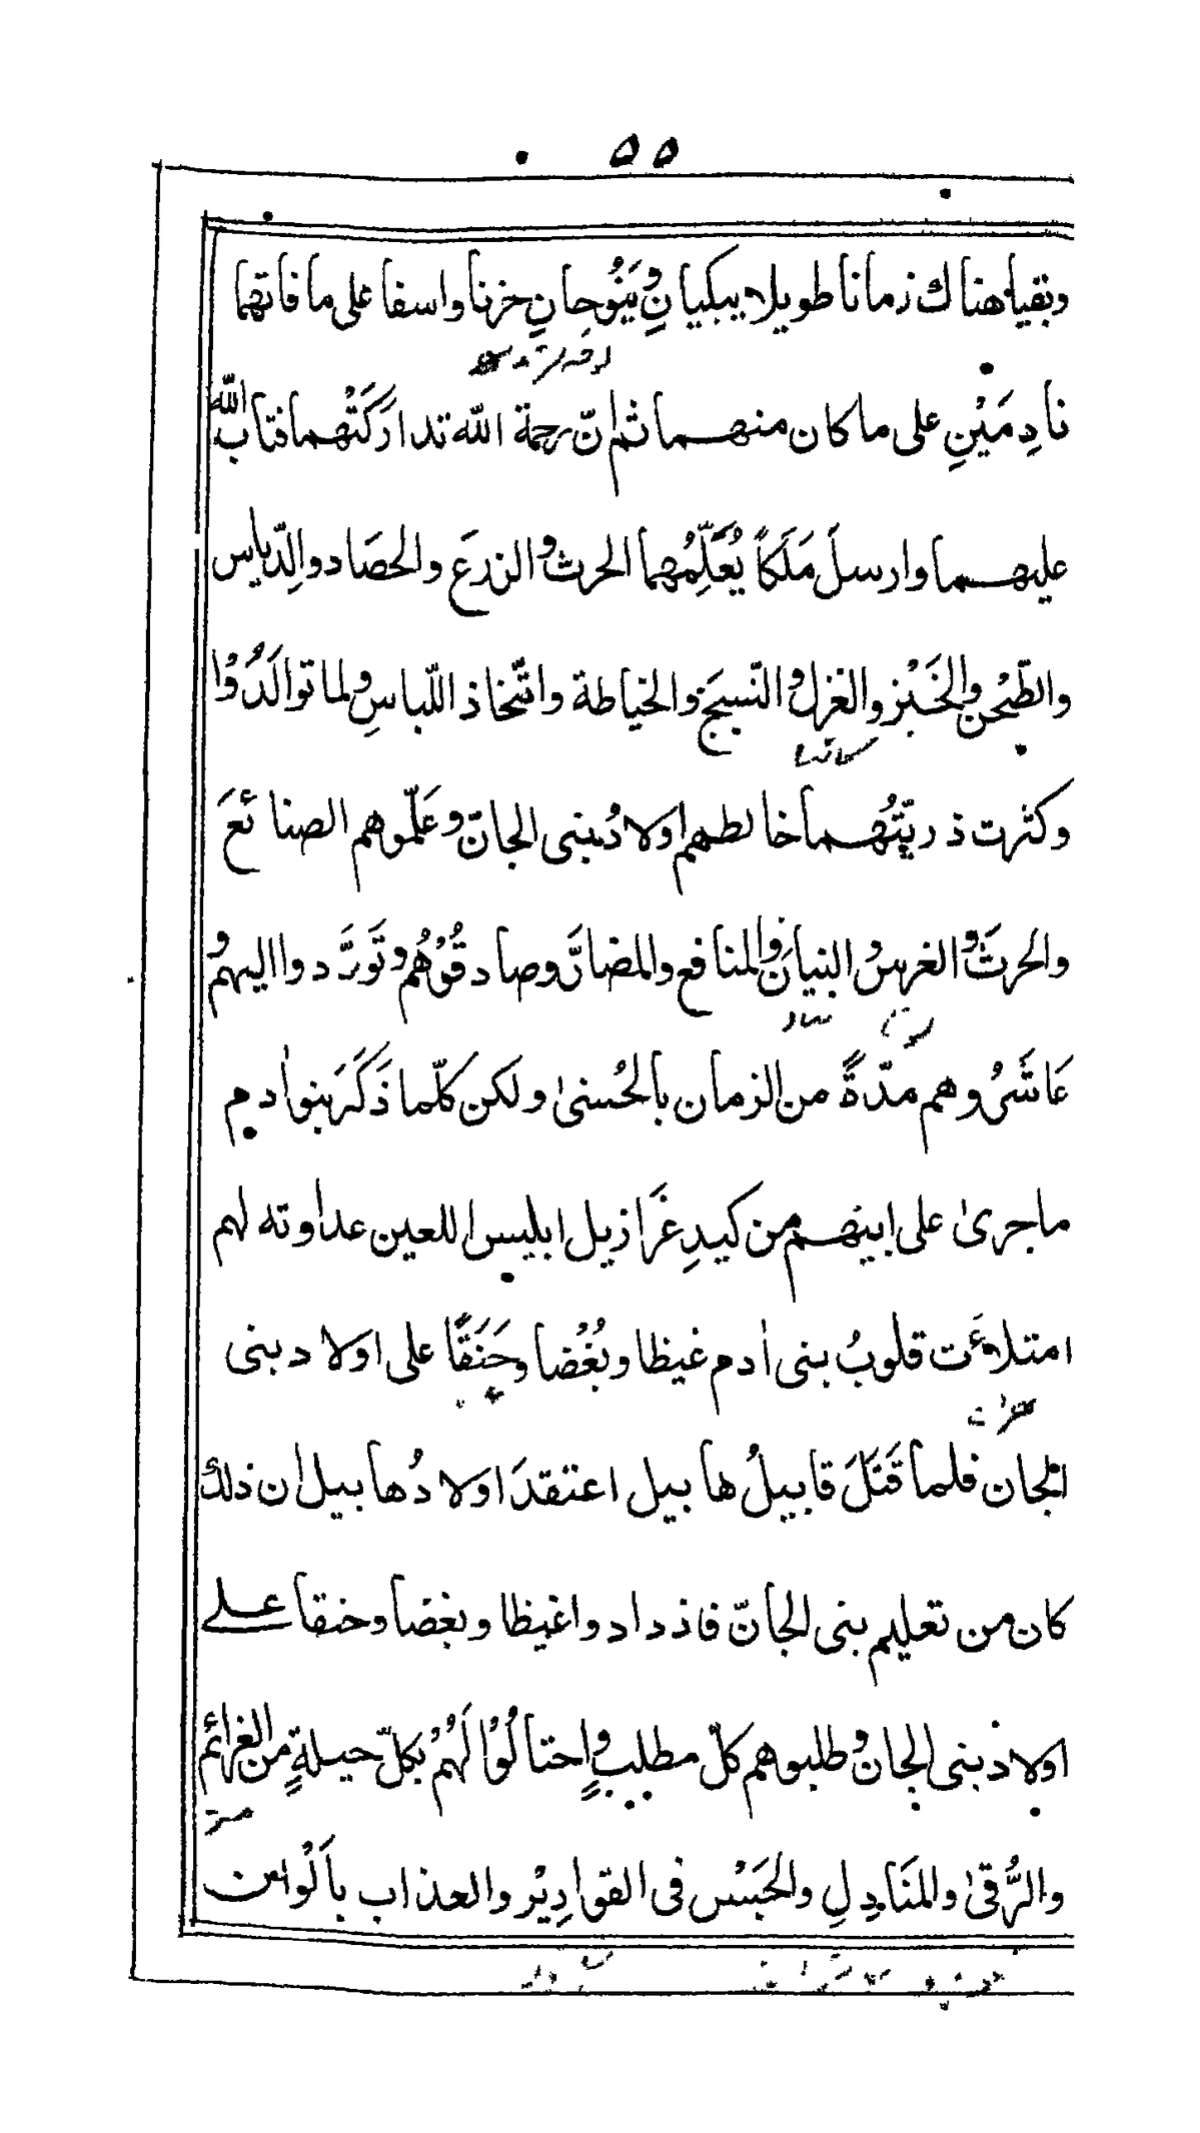 ٥٥
وبقياهناك زمانا طويلا يبكيانِ وَيَنُوحانِ حزنا واسفا على ما فاتهما
نادِمَيْنِ على ما كان منهما ثم انّ رحمة الله تداركَتْهما فتاب الله
عليهما وارسلَ مَلَكاً يُعَلِّمُهما الحرث والزرعَ والحصاد والدِّياس
والطّحْن والخَبْز والغزل والنّسجَ والخياطة واتّخاذ اللّباسِ ولما توالَدُوْا
وكثرت ذريّتُهما خالطهم اولادُ بنى الجانّ وعَلّموهم الصنائعَ
والحرثَ والغرسَ والبنيانَ والمنافع والمضارَّ وصادقُوْهُم وتَوَرَّدوا اليهمْ و
عَاشَرُوهم مدّةً من الزمان بالحُسنىٰ ولكن كلّما ذَكَرَ بنوا ٰدم
ما جرىٰ على ابيهم من كيدِ عَزَازيل ابليس اللعين عداوته لهم
امتلأَت قلوبُ بنى اٰدم غيظا وبُغْضا وحَنَقًا على اولاد بنى
الجان فلما قَتَلَ قابيلُ هابيل اعتقدَ اولادُ هابيل ان ذلك
كان من تعليم بنى الجانّ فاذدادوا غيظا وبغضا وحنقا على
اولاد بنى الجان وطلبوهم كلّ مطلبٍ واحتالُوْا لَهُمْ بكلّ حيلةٍ من العزائم
والرُّقىٰ والمنَادِلِ والحَبْس فى القوارِيْر والعذاب بألْوان